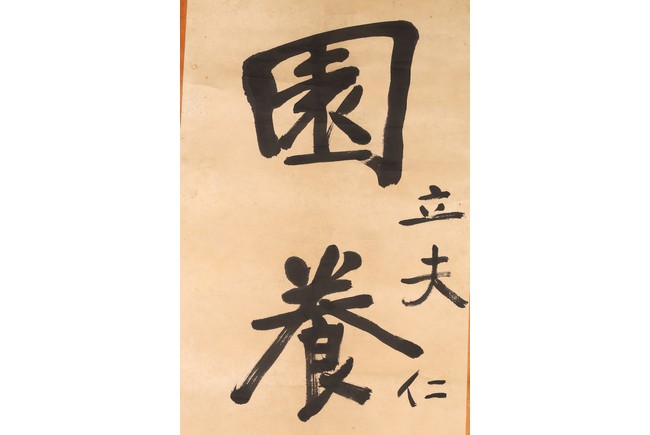 立夫仁
園養